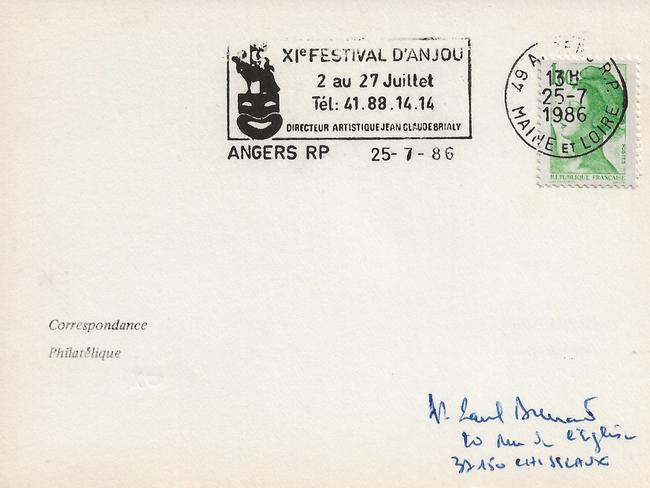 XIe FESTIVAL D'ANJOU
2 au 27 Juillet
Tél: 41.88.14.14
DIRECTEUR ARTISTIQUE JEAN CLAUDE BRIALY
ANGERS RP 25-7-86
49 A R.P.
13H
25-7
1986
MAINE ET LOIRE
POSTES
REPUBLIQUE FRANÇAISE
Correspondance
Philatélique
10 Rue de l'Eglise
37150 CHISSEAUX